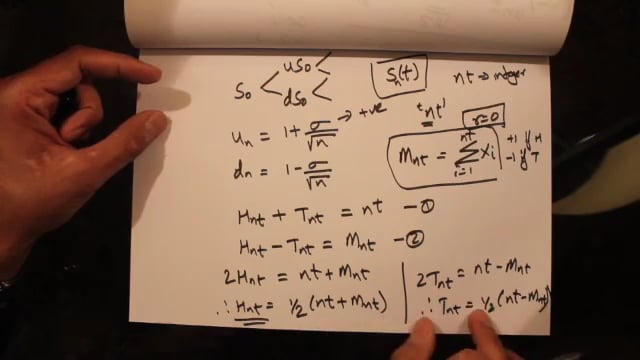 uS₀
S₀ < dS₀
Sₙ(t)
nt → integer
uₙ = 1 + σ/√n → +ve
'nt'
r=0
dₙ = 1 − σ/√n
Mₙₜ = Σ_{i=1}^{nt} Xᵢ
+1 if H
−1 if T
Hₙₜ + Tₙₜ = nt — ①
Hₙₜ − Tₙₜ = Mₙₜ — ②
2Hₙₜ = nt + Mₙₜ
∴ Hₙₜ = 1/2 (nt + Mₙₜ)
2Tₙₜ = nt − Mₙₜ
∴ Tₙₜ = 1/2 (nt − Mₙₜ)